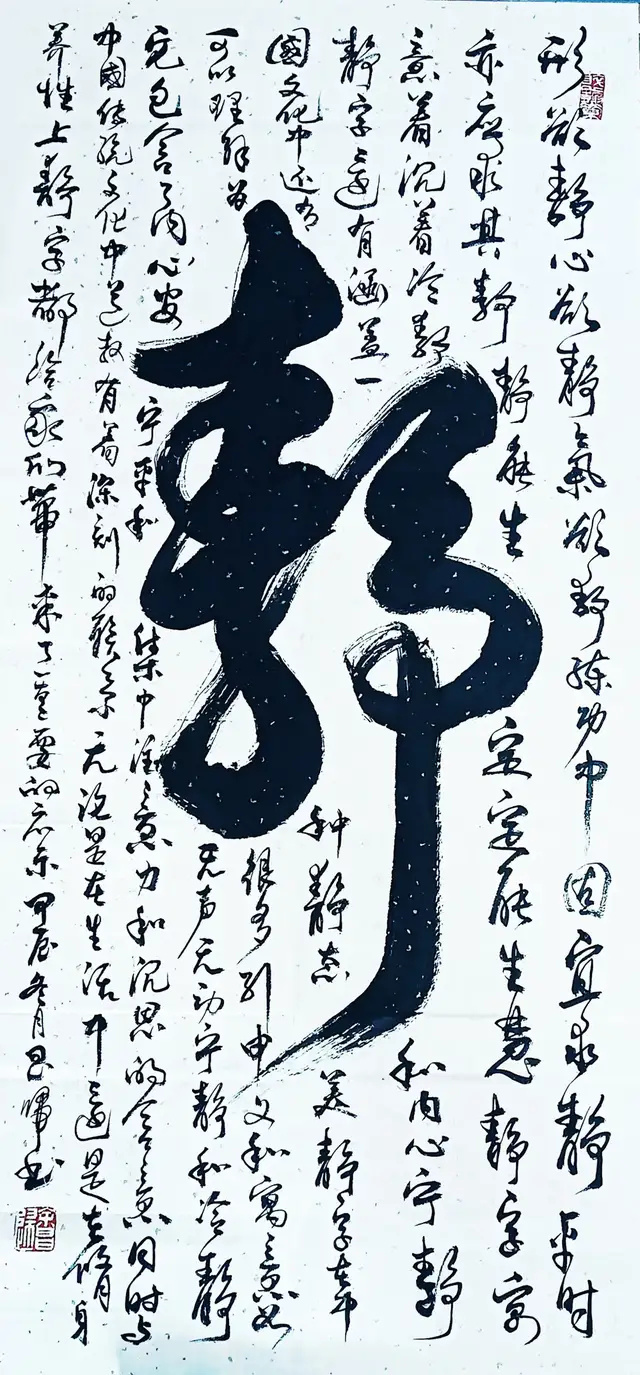 形欲静心欲静氣欲静练功中固宜求静平时
亦应求其静静能生定定能生慧静字寓
意着沉着冷静和内心宁静
静字还有涵盖一种静态美静字在中
國文化中还有很多引申义和寓意如
可以理解为无声无动宁静和冷静
它包含了内心安宁平和集中注意力和沉思的含意同时与
中國传统文化中道教有着深刻的联系无论是在生活中还是在修身
养性上静字都给我们带来了重要的启示甲辰冬月昌书
静